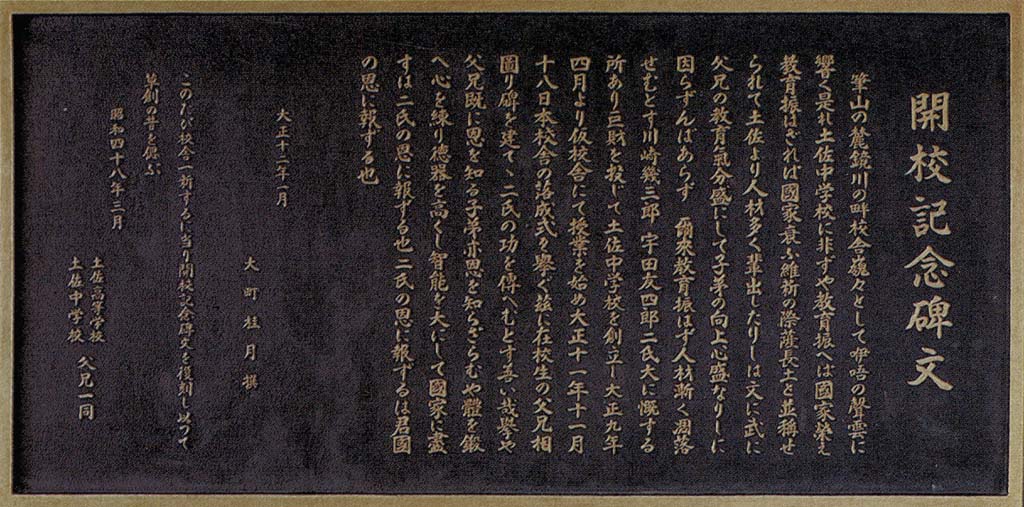 開校記念碑文
筆山の麓鏡川の畔校舎巍々として咿唔の聲雲に
響く是れ土佐中學校に非ずや教育振へば國家榮え
教育振はざれば國家衰ふ維新の際薩長土と並稱せ
られて土佐より人材多く輩出したりしは文に武に
父兄の教育氣分盛にして子弟の向上心盛なりしに
因らずんばあらず 爾來教育振はず人材漸く凋落
せむとす川崎幾三郎宇田友四郎二氏大に慨する
所あり巨財を投じて土佐中学校を創立し大正九年
四月より仮校舎にて授業を始め大正十一年十一月
十八日本校舎の落成式を擧ぐ茲に在校生の父兄相
圖り碑を建てゝ二氏の功を傳へむとす善い哉擧や
父兄既に恩を知る子弟亦恩を知らざらむや體を鍛
へ心を練り德器を高くし智能を大にして國家に盡
すは二氏の恩に報ずる也二氏の恩に報ずるは君國
の恩に報ずる也
大正十二年一月
大町桂月撰
このたび校舎一新するに当り開校記念碑文を復刻し以って
草創の昔を偲ぶ
昭和四十八年三月
土佐高等学校
土佐中学校 父兄一同